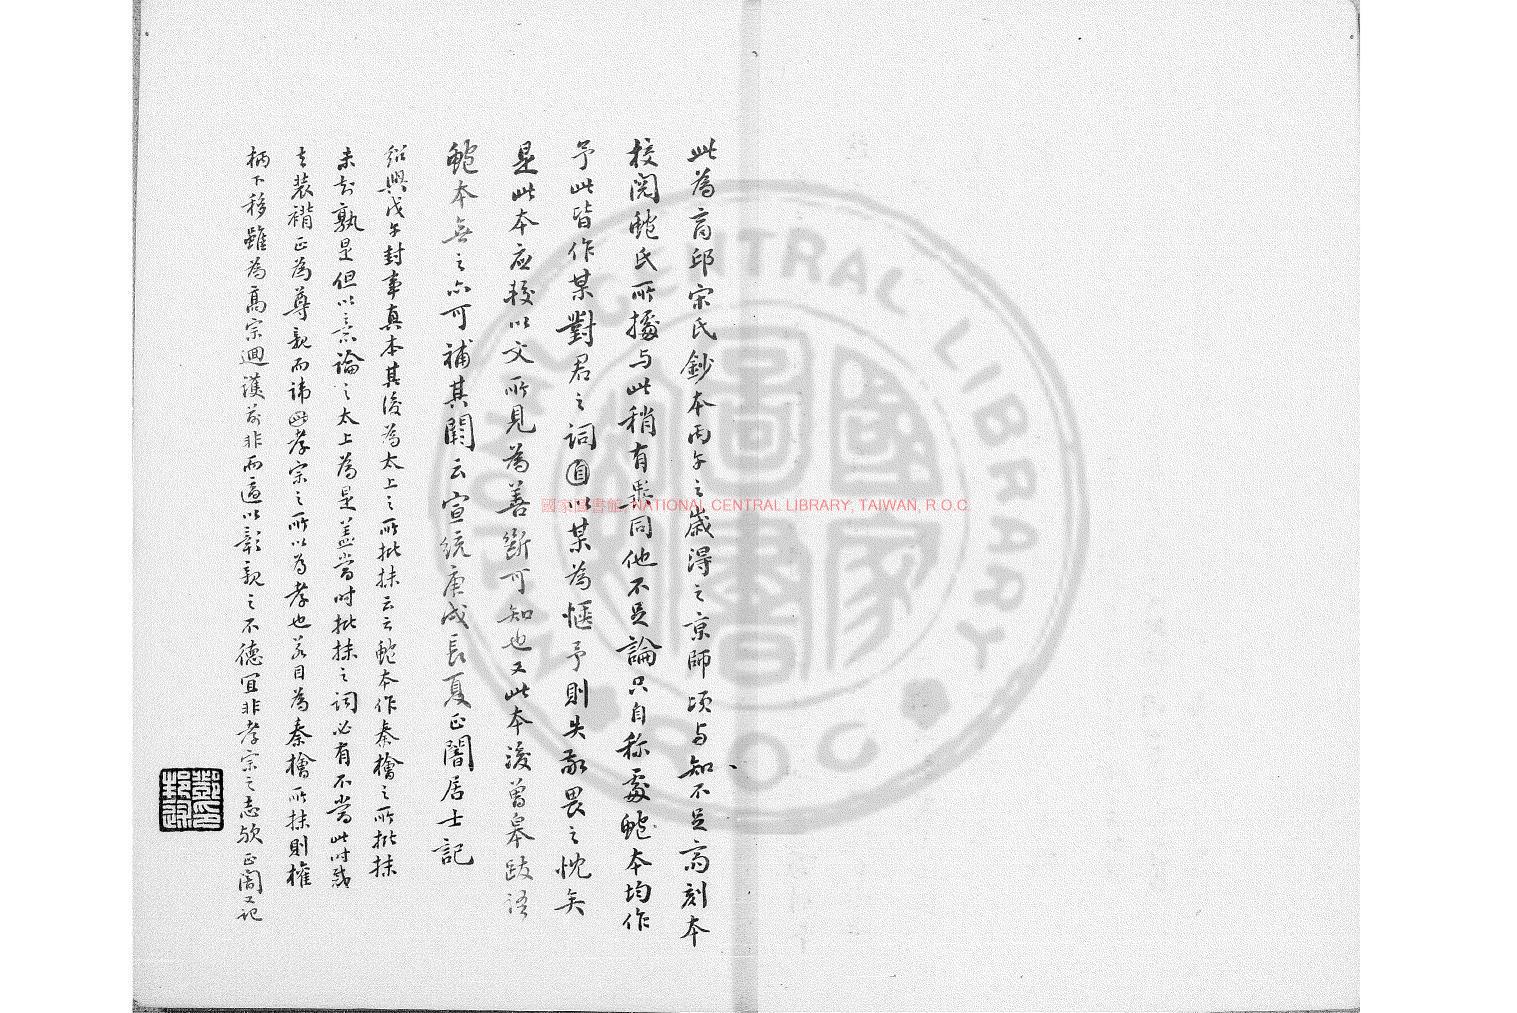 此為商邱宋氏鈔本丙午之歲得之京師頃与知不足齋刻本
校閱鮑氏所據与此稍有異同他不足論只自称處鮑本均作
予此皆作某對君之詞自以某為愜予則失敬畏之忱矣
是此本应校以文所見為善斷可知也又此本後曾皋跋語
鮑本無之亦可補其闕云宣統庚戌長夏正闇居士記
紹興戊午封事真本其後為太上之所批抹云云鮑本作秦檜之所批抹
未知孰是但以意論之太上為是盖當時批抹之詞必有不當此時裁
去裝褙正為尊親而諱此孝宗之所以為孝也若目為秦檜所抹則權
柄下移雖為高宗迴護前非而適以彰親之不德宜非孝宗之志歟正闇又記
國家圖書館, NATIONAL CENTRAL LIBRARY, TAIWAN, R.O.C.
NATIONAL CENTRAL LIBRARY
R.O.C.
國家圖書